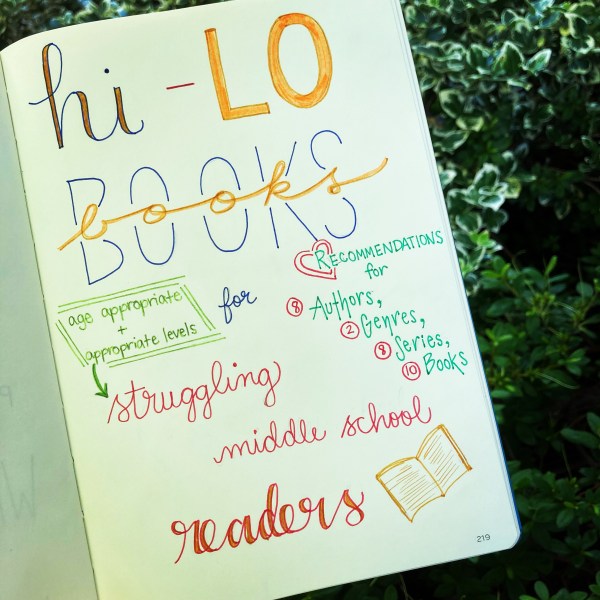 hi - LO
BOOKS
books
RECOMMENDATIONS
for
8 Authors,
2 Genres,
8 Series,
10 Books
age appropriate
+
appropriate levels
for
struggling
middle school
readers
219